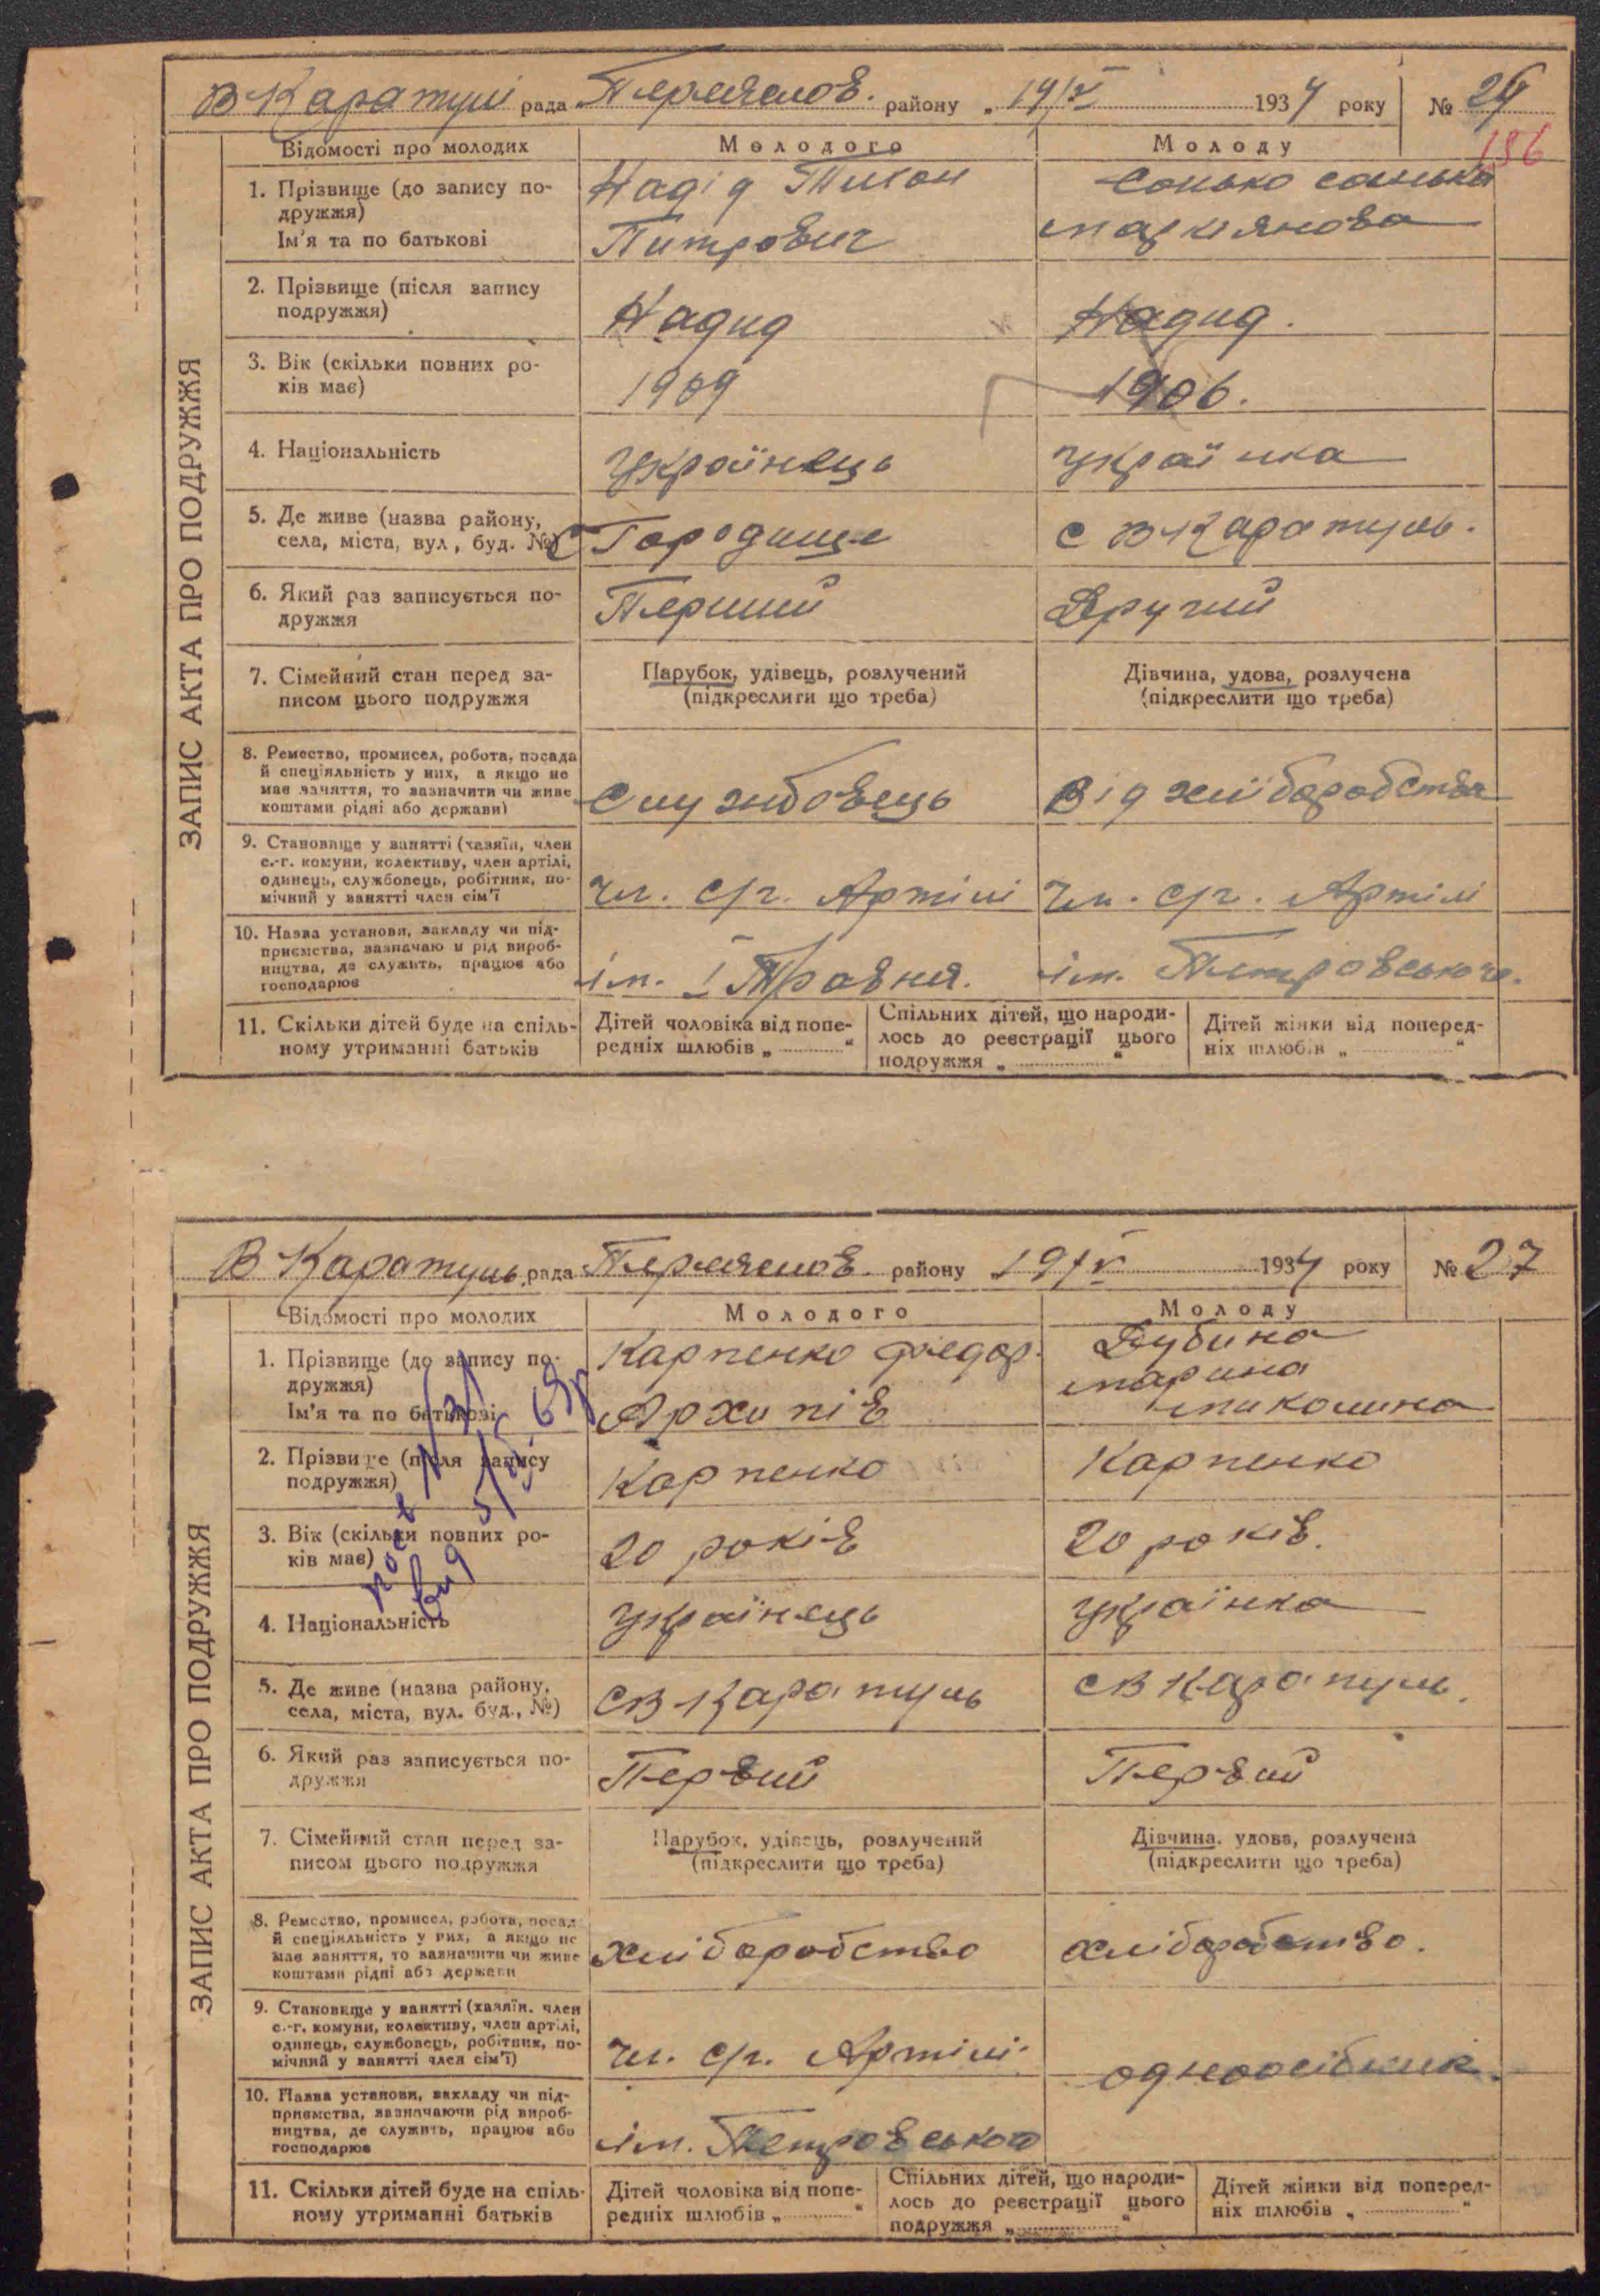 В Каратулі рада Переяслов. району „ 19/V 1934 року № 26
196
Відомості про молодих Молодого Молоду
1. Прізвище (до запису по- Надід Тихон Сонько Санька
дружжя)
Ім'я та по батькові Питрович маркіянова
2. Прізвище (після запису
подружжя) Надид Надид.
3. Вік (скільки повних ро-
ків має) 1909 1906.
4. Національність Українець Українка
5. Де живе (назва району,
села, міста, вул., буд. №) с Городище с В Каратуль.
6. Який раз записується по- Перший Другий
дружжя
7. Сімейний стан перед за- Парубок, удівець, розлучений Дівчина, удова, розлучена
писом цього подружжя (підкреслити що треба) (підкреслити що треба)
8. Ремество, промисел, робота, посада
й спеціяльність у них, а якщо не
має заняття, то зазначити чи живе Службовець Від хліборобства
коштами рідні або держави)
9. Становище у занятті (хазяїн, член
с.-г. комуни, колективу, член артілі,
одинець, службовець, робітник, по- Чл. с/г. Артілі Чл. с/г. Артілі
мічний у занятті член сім'ї
10. Назва установи, закладу чи під-
приємства, зазначаючи рід вироб-
ництва, де служить, працює або ім. 1 Травня. ім. Петровського.
господарює
11. Скільки дітей буде на спіль- Дітей чоловіка від попе- Спільних дітей, що народи- Дітей жінки від поперед-
ному утриманні батьків редніх шлюбів „ “ лось до реєстрації цього ніх шлюбів „ “
подружжя „ “
ЗАПИС АКТА ПРО ПОДРУЖЖЯ
В Каратуль рада Переяслов. району „ 19/V 1934 року № 27
Відомості про молодих Молодого Молоду
1. Прізвище (до запису по- Карпенко Федор. Дубина
дружжя) марина
Ім'я та по батькові Архипів миколина
2. Прізвище (після запису
подружжя) Карпенко Карпенко
3. Вік (скільки повних ро-
ків має) 20 років 20 років.
4. Національність Українець Українка
5. Де живе (назва району,
села, міста, вул. буд., №) с В Каратуль с В Каратуль.
6. Який раз записується по-
дружжя Первий Первий
7. Сімейний стан перед за- Парубок, удівець, розлучений Дівчина, удова, розлучена
писом цього подружжя (підкреслити що треба) (підкреслити що треба)
8. Ремество, промисел, робота, посад
й спеціяльність у них, а якщо не
має заняття, то зазначити чи живе Хліборобство Хліборобство.
коштами рідні або держави
9. Становище у занятті (хазяїн, член
с.-г. комуни, колективу, член артілі,
одинець, службовець, робітник, по- Чл. с/г. Артілі одноосібник
мічний у занятті член сім'ї)
10. Назва установи, закладу чи під-
приємства, зазначаючи рід вироб-
ництва, де служить, працює або
господарює ім. Петровського
11. Скільки дітей буде на спіль- Дітей чоловіка від попе- Спільних дітей, що народи- Дітей жінки від поперед-
ному утриманні батьків редніх шлюбів „ “ лось до реєстрації цього ніх шлюбів „ “
подружжя „ “
ЗАПИС АКТА ПРО ПОДРУЖЖЯ